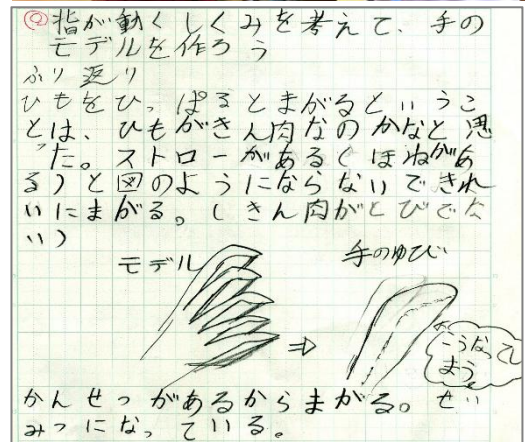 Q 指が動くしくみを考えて、手の
モデルを作ろう
ふり返り
ひもをひっぱるとまがるというこ
とは、ひもがきん肉なのかなと思
った。ストローがある(ほねがあ
る)と図のようにならないできれ
いにまがる。(きん肉がとびでな
い)
モデル
手のゆび
こうなって
まう
かんせつがあるからまがる。せい
みつになっている。